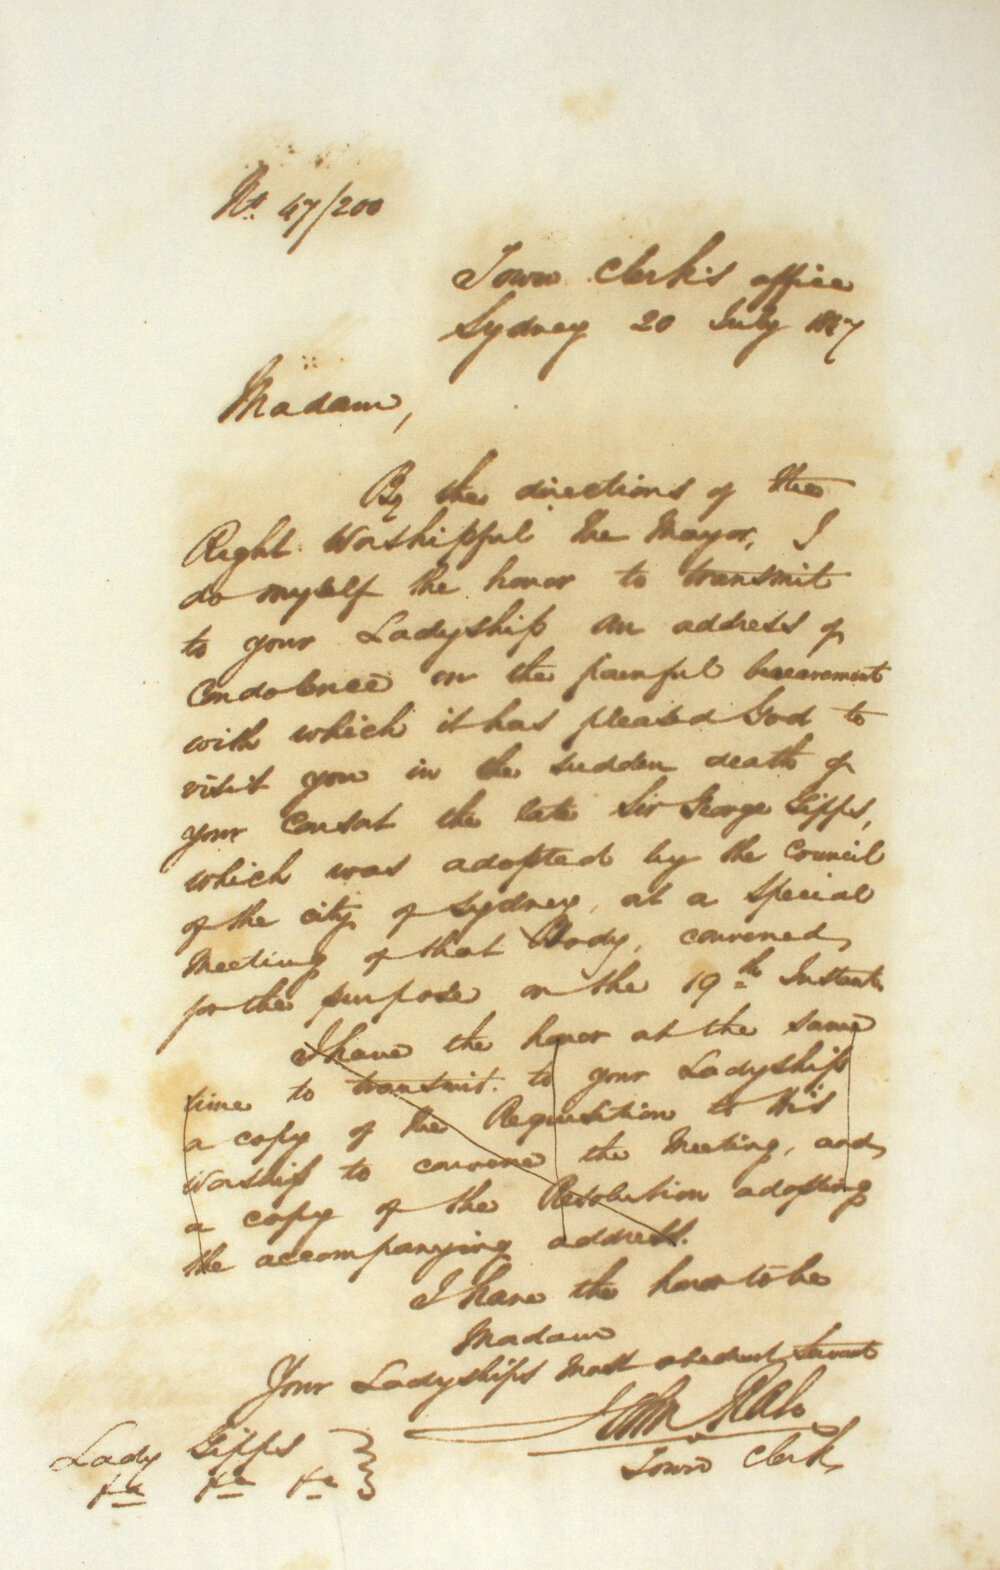 No. 47/200
Town Clerk's office
Sydney 20 July 1847
Madam,
By the directions of the
Right Worshipful the Mayor, I
do myself the honor to transmit
to your Ladyship an address of
Condolence on the painful bereavement
with which it has pleased God to
visit you in the sudden death of
your Consort the late Sir George Gipps,
which was adopted by the Council
of the city of Sydney, at a Special
Meeting of that Body, convened,
for the purpose on the 19th Instant.
I have the honor at the same
time to transmit to your Ladyship
a copy of the Requisition to His
Worship to convene the Meeting, and,
a copy of the Resolution adopting
the accompanying address.
I have the honor to be
Madam
Your Ladyships Most obedient Servant
John
Town Clerk
Lady Gipps
&c &c &c